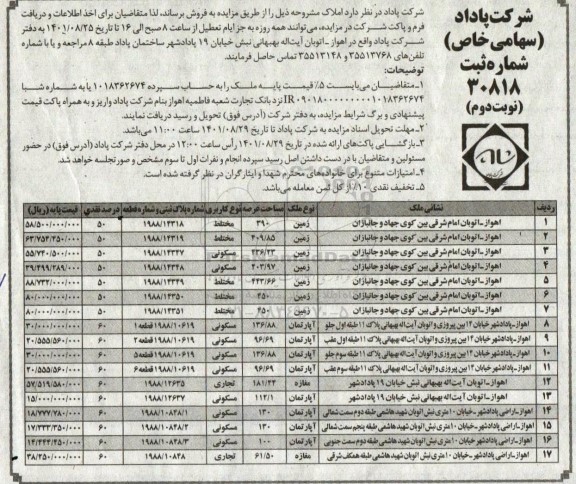 شرکت پاداد
(سهامی خاص)
شماره ثبت
۳۰۸۱۸
(نوبت دوم)
شرکت پاداد در نظر دارد املاک مشروحه ذیل را از طریق مزایده به فروش برساند، لذا متقاضیان برای اخذ اطلاعات و دریافت
فرم و پاکت شرکت در مزایده، می‌توانند همه روزه به جز ایام تعطیل از ساعت ۸ صبح الی ۱۶ تا تاریخ ۱۴۰۱/۰۸/۲۵ به دفتر
شرکت پاداد واقع در اهواز ـ اتوبان آیت‌اله بهبهانی نبش خیابان ۱۹ پادادشهر ساختمان پاداد طبقه ۸ مراجعه و یا با شماره
تلفن‌های ۳۵۵۱۳۷۶۸ و ۳۵۵۱۳۱۴۸ تماس حاصل فرمایند.
توضیحات:
۱ـ متقاضیان می‌بایست ۵٪ قیمت پایه ملک را به حساب سپرده ۱۰۱۸۳۶۲۶۷۴ یا به شماره شبا
نزد بانک تجارت شعبه فاطمیه اهواز بنام شرکت پاداد واریز و به همراه پاکت قیمت
پیشنهادی و برگ شرایط مزایده، به دفتر شرکت (آدرس فوق) تحویل و رسید دریافت نمایند.
۲ـ مهلت تحویل اسناد مزایده به شرکت پاداد تا تاریخ ۱۴۰۱/۰۸/۲۹ تا ساعت ۱۱:۰۰ می‌باشد.
۳ـ بازگشایی پاکت‌های ارائه شده در تاریخ ۱۴۰۱/۰۸/۲۹ رأس ساعت ۱۲:۰۰ در محل دفتر شرکت پاداد (آدرس فوق) در حضور
مسئولین و متقاضیان با در دست داشتن اصل رسید سپرده انجام و نفرات اول تا سوم مشخص و صورتجلسه خواهد شد.
۴ـ امتیازات متنوع برای خانواده‌های محترم شهدا و ایثارگران در نظر گرفته شده است.
۵ـ تخفیف نقدی ۱۰٪ از کل ثمن معامله می‌باشد.
ردیف نشانی ملک نوع ملک مساحت عرصه نوع کاربری شماره پلاک ثبتی و شماره قطعه درصد نقدی قیمت پایه (ریال)
۱ اهواز ـ اتوبان امام شرقی بین کوی جهاد و جانبازان زمین ۳۹۰ مختلط ۱۹۸۸/۱۴۳۱۸ ۵۰ ۵۸/۵۰۰/۰۰۰/۰۰۰
۲ اهواز ـ اتوبان امام شرقی بین کوی جهاد و جانبازان زمین ۴۰۹/۸۵ مختلط ۱۹۸۸/۱۴۳۱۹ ۵۰
۳ اهواز ـ اتوبان امام شرقی بین کوی جهاد و جانبازان زمین مسکونی ۱۹۸۸/۱۴۳۴۷ ۵۰
۴ اهواز ـ اتوبان امام شرقی بین کوی جهاد و جانبازان زمین ۲۰۳/۹۷ مسکونی ۱۹۸۸/۱۴۳۴۸ ۵۰
۵ اهواز ـ اتوبان امام شرقی بین کوی جهاد و جانبازان زمین ۴۴۳/۶۶ مختلط ۱۹۸۸/۱۴۳۴۹ ۵۰ ۸۸/۷۳۲/۰۰۰/۰۰۰
۶ اهواز ـ اتوبان امام شرقی بین کوی جهاد و جانبازان زمین ۴۵۰ مختلط ۱۹۸۸/۱۴۳۵۰ ۵۰ ۸۰/۰۰۰/۰۰۰/۰۰۰
۷ اهواز ـ اتوبان امام شرقی بین کوی جهاد و جانبازان زمین ۴۵۰ مختلط ۱۹۸۸/۱۴۳۵۱ ۵۰ ۸۰/۰۰۰/۰۰۰/۰۰۰
۸ اهواز ـ پادادشهر خیابان ۱۲ بین پیروزی و اتوبان آیت‌اله بهبهانی پلاک ۱۱ طبقه اول جلو آپارتمان ۱۳۶/۸۸ مسکونی ۱۹۸۸/۱۰۶۱۹ قطعه ۱ ۶۰ ۳۰/۰۰۰/۰۰۰/۰۰۰
۹ اهواز ـ پادادشهر خیابان ۱۲ بین پیروزی و اتوبان آیت‌اله بهبهانی پلاک ۱۱ طبقه اول عقب آپارتمان ۹۶/۶۹ مسکونی ۱۹۸۸/۱۰۶۱۹ قطعه ۲ ۶۰ ۲۰/۵۵۵/۵۶۰/۰۰۰
۱۰ اهواز ـ پادادشهر خیابان ۱۲ بین پیروزی و اتوبان آیت‌اله بهبهانی پلاک ۱۱ طبقه سوم جلو آپارتمان ۱۳۶/۸۸ مسکونی ۱۹۸۸/۱۰۶۱۹ قطعه ۵ ۶۰ ۳۰/۰۰۰/۰۰۰/۰۰۰
۱۱ اهواز ـ پادادشهر خیابان ۱۲ بین پیروزی و اتوبان آیت‌اله بهبهانی پلاک ۱۱ طبقه سوم عقب آپارتمان ۹۶/۶۹ مسکونی ۱۹۸۸/۱۰۶۱۹ قطعه ۶ ۶۰ ۲۰/۵۵۵/۵۶۰/۰۰۰
۱۲ اهواز ـ اتوبان آیت‌اله بهبهانی نبش خیابان ۱۹ پادادشهر مغازه ۱۸۱/۲۴ تجاری ۱۹۸۸/۱۲۶۳۵ ۶۰ ۵۷/۵۱۹/۵۸۰/۰۰۰
۱۳ اهواز ـ اتوبان آیت‌اله بهبهانی نبش خیابان ۱۹ پادادشهر آپارتمان ۱۱۲/۱ مسکونی ۱۹۸۸/۱۲۶۳۷ ۶۰ ۱۵/۰۰۰/۰۰۰/۰۰۰
۱۴ اهواز ـ اراضی پادادشهر ـ خیابان ۱۰ متری نبش اتوبان شهید هاشمی طبقه دوم سمت شمالی آپارتمان ۱۳۰ مسکونی ۱۹۸۸/۱۰۸۴۸/۱ ۶۰ ۱۸/۷۷۷/۷۸۰/۰۰۰
۱۵ اهواز ـ اراضی پادادشهر ـ خیابان ۱۰ متری نبش اتوبان شهید هاشمی طبقه پنجم سمت شمالی آپارتمان ۱۳۰ مسکونی ۱۹۸۸/۱۰۸۴۸/۲ ۶۰ ۱۷/۳۳۳/۳۵۰/۰۰۰
۱۶ اهواز ـ اراضی پادادشهر ـ خیابان ۱۰ متری نبش اتوبان شهید هاشمی طبقه دوم سمت جنوبی آپارتمان ۱۰۰ مسکونی ۱۹۸۸/۱۰۸۴۸/۳ ۶۰ ۱۴/۴۴۴/۴۵۰/۰۰۰
۱۷ اهواز ـ اراضی پادادشهر ـ خیابان ۱۰ متری نبش اتوبان شهید هاشمی طبقه همکف شرقی مغازه ۶۱/۵۰ تجاری ۱۹۸۸/۱۰۸۴۸ ۶۰ ۳۸/۴۵۰/۰۰۰/۰۰۰